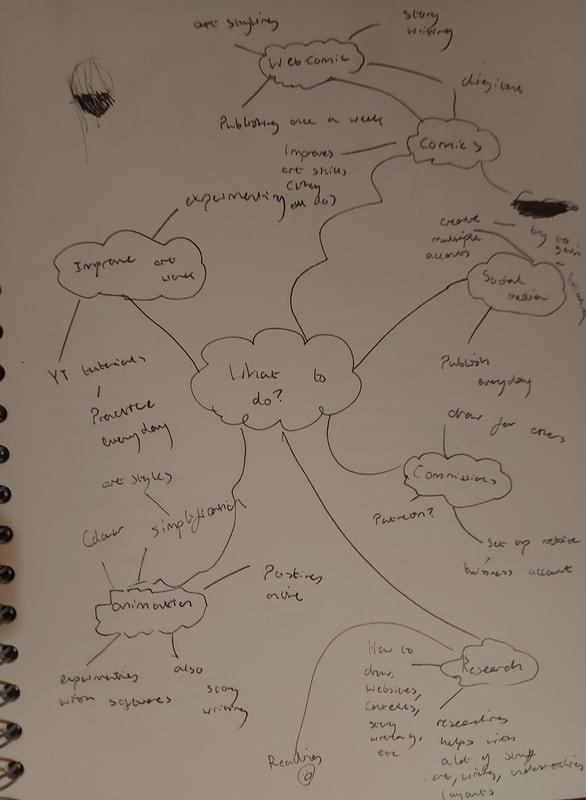 art styling
story
writing
Webcomic
digital
Publishing once a week
Comics
improves
art skills
(they
all do)
experimenting
create
multiple
accounts
try to
gain
a
Improve art
work
Social
media
YT tutorials
Practice
everyday
What to
do?
Publish
everyday
draw for others
art styles
simplification
Colour
Commissions
Patreon?
Set up website
business account
animation
Posting
online
experimenting
with softwares
also
story
writing
How to
draw,
websites,
contests,
story
writing,
etc
Research
researching
helps with
a lot of stuff
art, writing, understanding
layouts
Reading